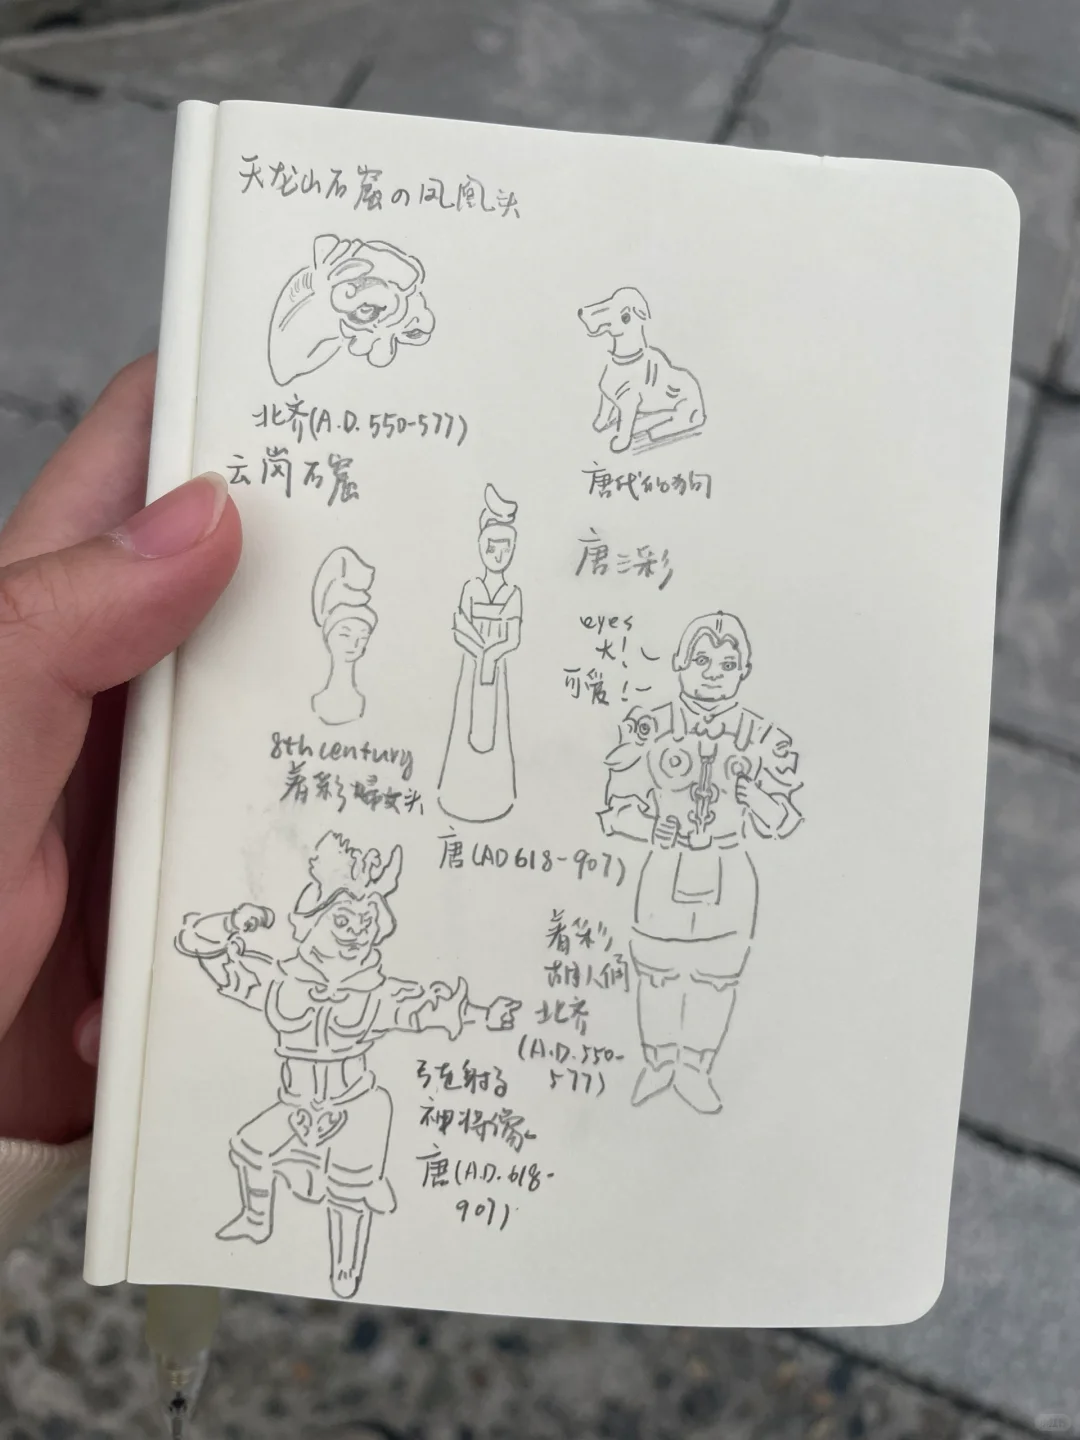 天龙山石窟の凤凰头
北齐(A.D.550-577)
云岗石窟
唐代的狗狗
唐三彩
eyes
大!~
可爱!~
8th century
着彩婦女头
唐(AD618-907)
着彩
胡人俑
北齐
(A.D.550-
577)
弓を射る
神将像
唐(A.D.618-
907)